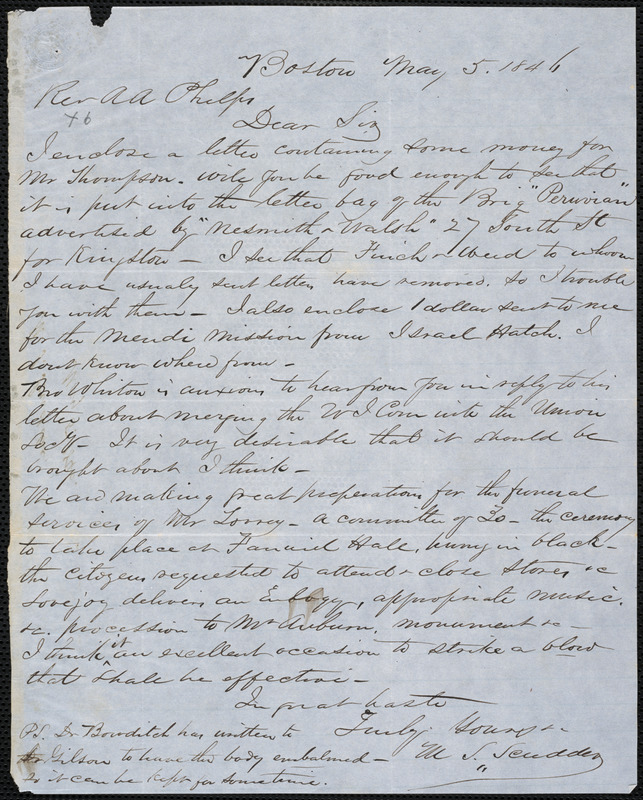 Boston May 5. 1846
Rev A A Phelps
Dear Sir
I enclose a letter containing some money for
Mr Thompson - will you be good enough to see that
it is put into the letter bag of the Brig "Peruvian"
advertised by "Nesmith & Walsh" 27 South St
for Kingston - I see that Finch & Weed to whom
I have usualy sent letters have removed. so I trouble
you with them - I also enclose 1 dollar sent to me
for the Mendi Mission from Israel Hatch. I
dont know where from -
Bro Whiton is anxious to hear from you in reply to his
letter about merging the W I Com with the Union
Socy. It is very desirable that it should be
brought about I think -
We are making great preparations for the funeral
services of Mr Torrey - a committee of 30 - the ceremony
to take place at Faneuil Hall, hung in black -
the Citizens requested to attend & close stores &c
Lovejoy delivers an Eulogy, appropriate music.
&c, procession to Mt Auburn, monument &c -
I think it an excellent occasion to strike a blow
that shall be effective -
In great haste
Truly Yours &c
M. S. Scudder
PS. Dr Bowditch has written to
Gilson to have the body embalmed -
so it can be kept for sometime.